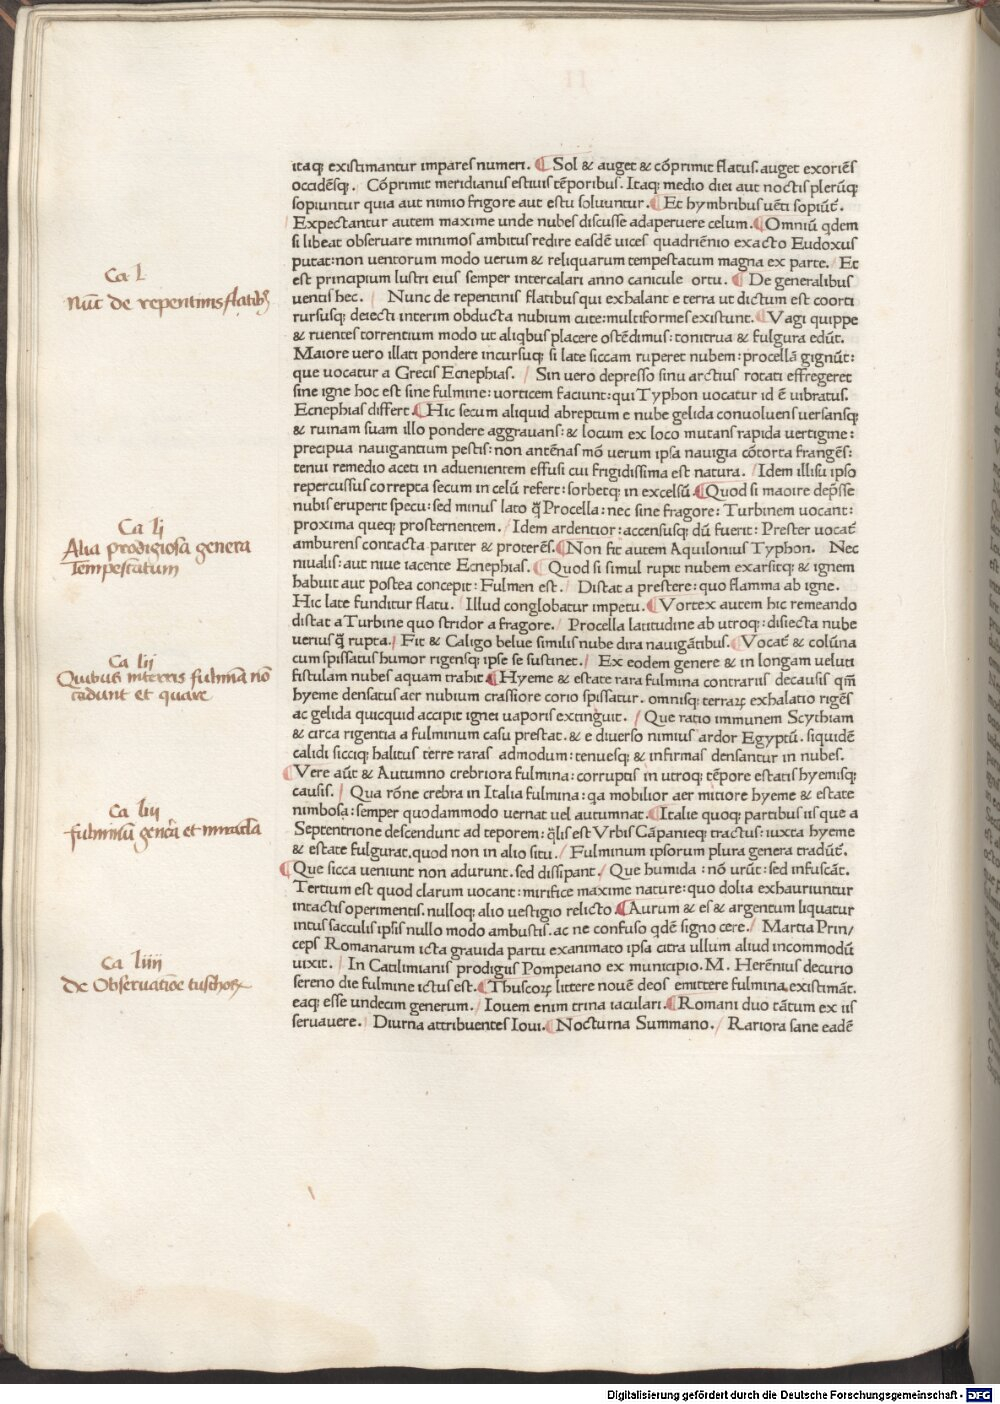 itaq; existimantur impares numeri. ¶ Sol & auget & cōprimit flatus. auget exoriēs
occidēsq;. Cōprimit meridianus estiuis tēporibus. Itaq; medio diei aut noctis plerūq;
sopiuntur quia aut nimio frigore aut estu soluuntur. ¶ Et hymbribus uēti sopiūt̄.
Expectantur autem maxime unde nubes discusse adaperuere celum. ¶ Omniū qdem
si libeat obseruare minimos ambitus redire easdē uices quadriēnio exacto Eudoxus
putat: non uentorum modo uerum & reliquarum tempestatum magna ex parte. Et
est principium lustri eius semper intercalari anno canicule ortu. ¶ De generalibus
uentis hec. Nunc de repentinis flatibus qui exhalant e terra ut dictum est coorti
Ca L
Nūc de repentinis flatibꝫ
rursusq; deiecti interim obducta nubium cute: multiformes existunt. ¶ Vagi quippe
& ruentes torrentium modo ut aliqbus placere ostēdimus: tonitrua & fulgura edūt.
Maiore uero illati pondere incursuq; si late siccam ruperet nubem: procellā gignūt:
que uocatur a Grecis Ecnephias. / Sin uero depresso sinu arctius rotati effregeret
sine igne hoc est sine fulmine: uorticem faciunt: qui Typhon uocatur id ē uibratus.
Ecnephias differt. ¶ Hic secum aliquid abreptum e nube gelida conuoluens uersansq;
& ruinam suam illo pondere aggrauans: & locum ex loco mutans rapida uertigine:
precipua nauigantium pestis: non antēnas mō uerum ipsa nauigia cōtorta frangēs:
tenui remedio aceti in aduenientem effusi cui frigidissima est natura. / Idem illisu ipso
repercussus correpta secum in celū refert: sorbetq; in excelsū. ¶ Quod si maoire dep̄sse
nubis eruperit specu: sed minus lato q̄ Procella: nec sine fragore: Turbinem uocant:
proxima queq; prosternentem. / Idem ardentior: accensusq; dū fuerit: Prester uocat̄
Ca lj
Alia prodigiosa genera
Tempestatum
amburens contacta pariter & proterēs. ¶ Non fit autem Aquilonius Typhon. Nec
niualis: aut niue iacente Ecnephias. ¶ Quod si simul rupit nubem exarsitq; & ignem
habuit aut postea concepit: Fulmen est. / Distat a prestere: quo flamma ab igne.
Hic late funditur flatu. Illud conglobatur impetu. ¶ Vortex autem hic remeando
distat a Turbine quo stridor a fragore. / Procella latitudine ab utroq;: disiecta nube
uerius q̄ rupta. / Fit & Caligo belue similis nube dira nauigātibus. ¶ Vocat̄ & colūna
cum spissatus humor rigensq; ipse se sustinet. / Ex eodem genere & in longam ueluti
Ca lii
Quibus in terris fulmīa nō
cadunt et quare
fistulam nubes aquam trahit. ¶ Hyeme & estate rara fulmina contrariis decausis qm̄
hyeme densatus aer nubium crassiore corio spissatur. omnisq; terraꝝ exhalatio rigēs
ac gelida quicquid accipit ignei uaporis extinguit. / Que ratio immunem Scythiam
& circa rigentia a fulminum casu prestat. & e diuerso nimius ardor Egyptū. siquidē
calidi siccíq; halitus terre raras admodum: tenuesq; & infirmas densantur in nubes.
¶ Vere aūt & Autumno crebriora fulmina: corruptis in utroq; tēpore estatis hyemisq;
causis. / Qua rōne crebra in Italia fulmina: qa mobilior aer mitiore hyeme & estate
nimbosa: semper quodammodo uernat uel autumnat. ¶ Italie quoq; partibus iis que a
Ca liij
fulminū genera et miracla
Septentrione descendunt ad teporem: q̄lis est Vrbis Cāpanieq; tractus: iuxta hyeme
& estate fulgurat. quod non in alio situ. / Fulminum ipsorum plura genera tradūt̄.
¶ Que sicca ueniunt non adurunt. sed dissipant. / Que humida: nō urūt: sed infuscāt.
Tertium est quod clarum uocant: mirifice maxime nature: quo dolia exhauriuntur
intactis operimentis. nulloq; alio uestigio relicto. ¶ Aurum & es & argentum liquatur
intus sacculis ipsis nullo modo ambustis. ac ne confuso qdē signo cere. / Martia Prin/
ceps Romanarum icta grauida partu exanimato ipsa citra ullum aliud incommodū
uixit. / In Catilimianis prodigiis Pompeiano ex municipio. M. Herēnius decurio
Ca liiij
de Obseruatiōe tuschoꝝ
sereno die fulmine ictus est. ¶ Thuscoꝝ littere nouē deos emittere fulmina existimāt.
eaq; esse undecim generum. / Iouem enim trina iaculari. ¶ Romani duo tātum ex iis
seruauere. / Diurna attribuentes Ioui. ¶ Nocturna Summano. / Rariora sane eadē
Digitalisierung gefördert durch die Deutsche Forschungsgemeinschaft - DFG